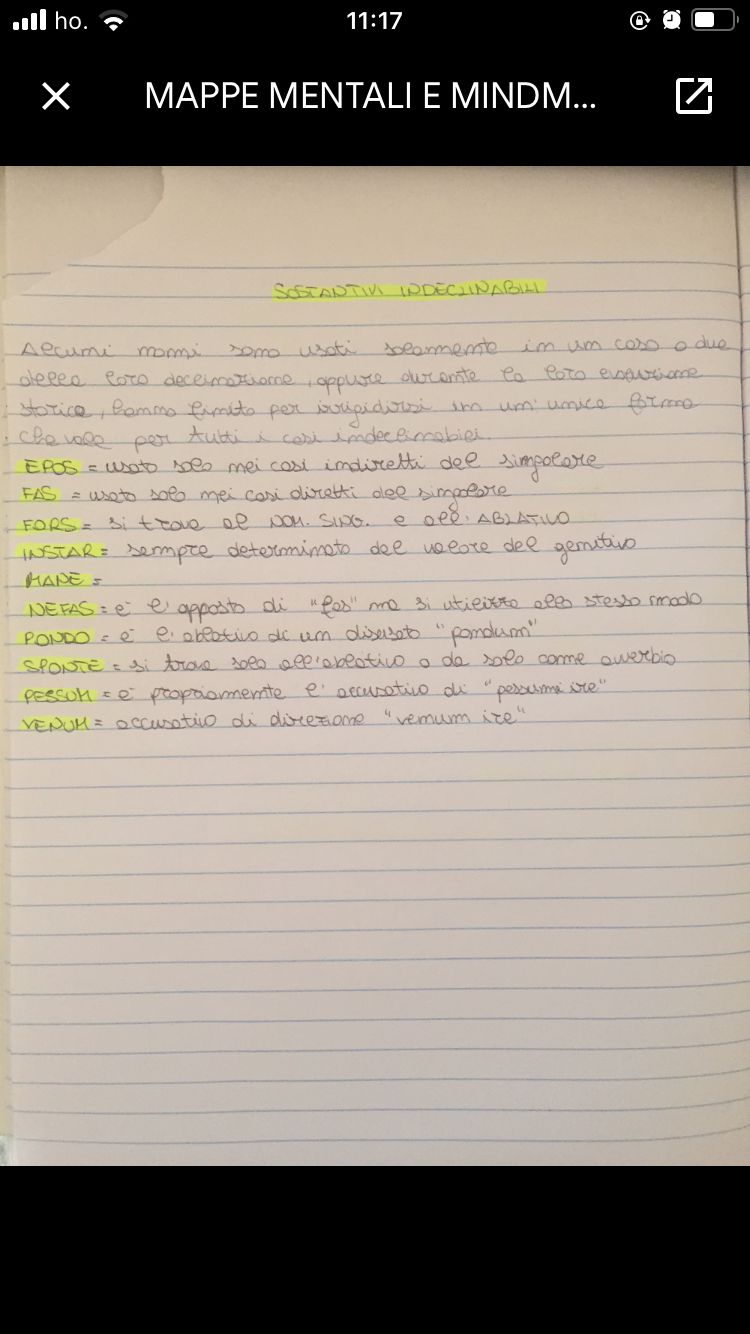 ho.
11:17
MAPPE MENTALI E MINDM...
SOSTANTIVI INDECLINABILI
Alcuni nomi sono usati solamente in un caso o due
della loro declinazione, oppure durante la loro evoluzione
storica, hanno finito per irrigidirsi in un'unica forma
che vale per tutti i casi indeclinabili.
EPOS = usato solo nei casi indiretti del singolare
FAS = usato solo nei casi diretti del singolare
FORS = si trova al NOM. SING. e all'ABLATIVO
INSTAR = sempre determinato dal valore del genitivo
MANE =
NEFAS = è l'opposto di "fas" ma si utilizza allo stesso modo
PONDO = è l'ablativo di un disusato "pondum"
SPONTE = si trova solo all'ablativo o da solo come avverbio
PESSUM = è propriamente l'accusativo di "pessum ire"
VENUM = accusativo di direzione "venum ire"